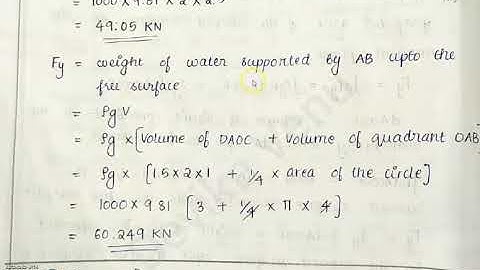 = 1000 × 9.81 × 2 × 2.5
= 49.05 KN
Fy = weight of water supported by AB upto the
free surface
= ρg V
= ρg × [Volume of DAOC + Volume of quadrant OAB]
= ρg × [1.5×2×1 + 1/4 × area of the circle]
= 1000×9.81 [3 + 1/4 × π × 4]
= 60.249 KN